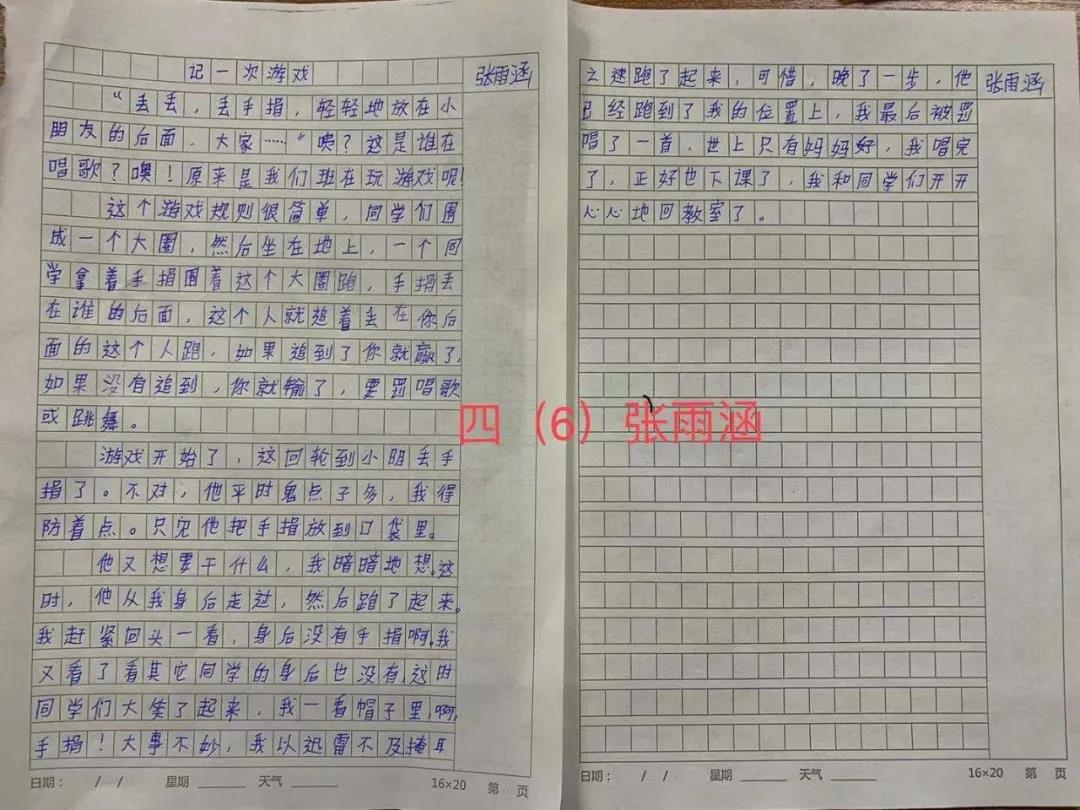 记一次游戏
张雨涵
“丢丢，丢手捐，轻轻地放在小
朋友的后面，大家……“咦？这是谁在
唱歌？噢！原来是我们班在玩游戏呢！
这个游戏规则很简单，同学们围
成一个大圈，然后坐在地上，一个同
学拿着手捐围着这个大圈跑，手捐丢
在谁的后面，这个人就追着丢在你后
面的这个人跑，如果追到了你就赢了，
如果没有追到，你就输了，要罚唱歌
或跳舞。
游戏开始了，这回轮到小明丢手
捐了。不对，他平时鬼点子多，我得
防着点。只见他把手捐放到口袋里。
他又想要干什么，我暗暗地想，这
时，他从我身后走过，然后跑了起来。
我赶紧回头一看，身后没有手捐啊，我
又看了看其它同学的身后也没有，这时
同学们大笑了起来，我一看帽子里，啊，
手捐！大事不妙，我以迅雷不及掩耳
日期： / / 星期 天气 16×20 第 页
之速跑了起来，可惜，晚了一步，他
张雨涵
已经跑到了我的位置上，我最后被罚
唱了一首，世上只有妈妈好，我唱完
了，正好也下课了，我和同学们开开
心心地回教室了。
四（6）张雨涵
日期： / / 星期 天气 16×20 第 页